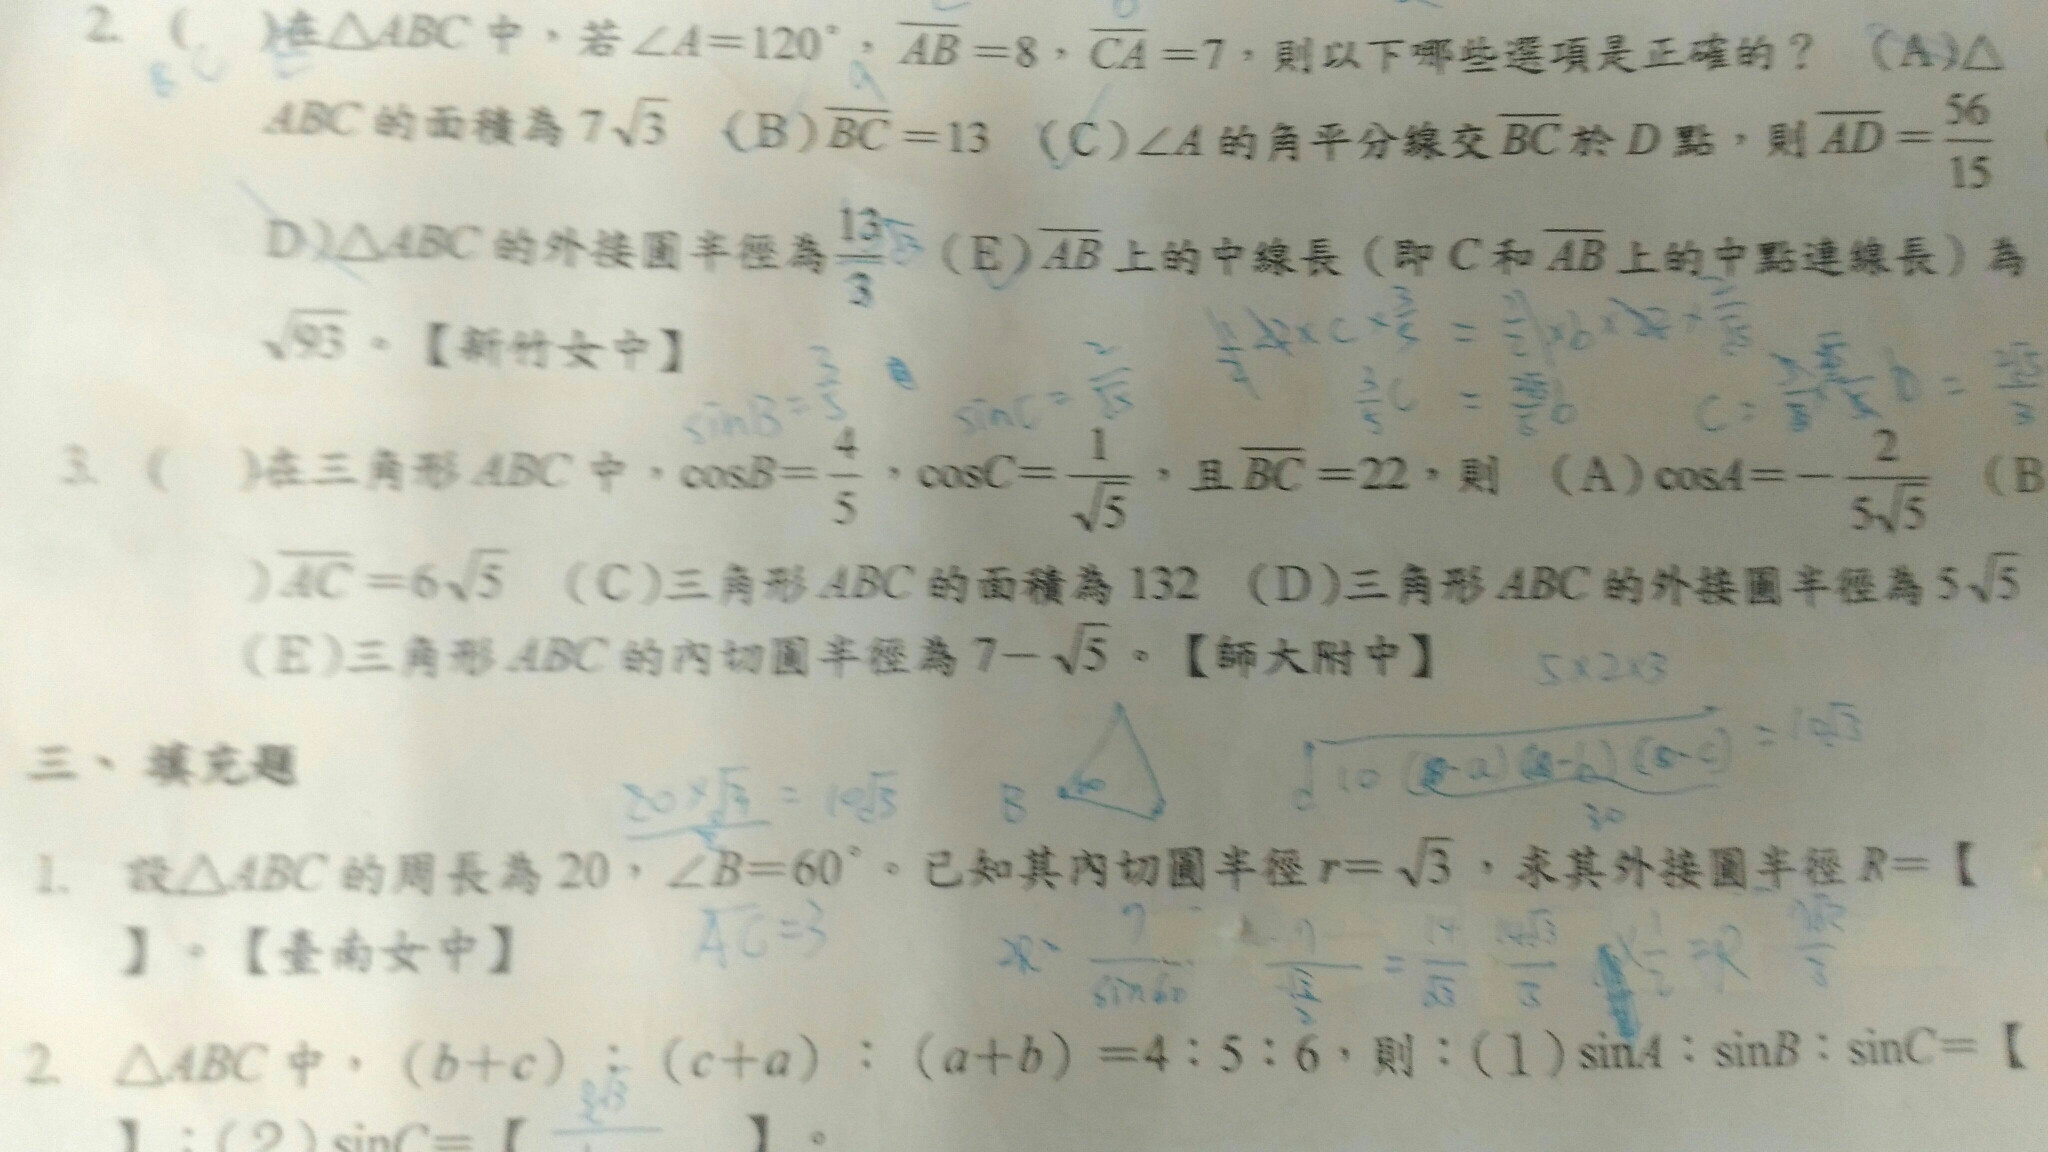 2. (    )在△ABC 中，若∠A=120°，AB=8，CA=7，則以下哪些選項是正確的？ (A)△
ABC 的面積為 7√3 (B)BC=13 (C)∠A 的角平分線交BC於 D 點，則AD=56/15 (
D)△ABC 的外接圓半徑為13/3 (E)AB上的中線長（即 C 和AB上的中點連線長）為
√93。【新竹女中】
sinB=3/5 sinC=2/√5
3. (    )在三角形 ABC 中，cosB=4/5，cosC=1/√5，且BC=22，則 (A)cosA=-2/5√5 (B
)AC=6√5 (C)三角形 ABC 的面積為 132 (D)三角形 ABC 的外接圓半徑為 5√5
(E)三角形 ABC 的內切圓半徑為 7-√5。【師大附中】
5×2×3
三、填充題
20×√3/2 = 10√3 B 60 = 10√3
30
1. 設△ABC 的周長為 20，∠B=60°。已知其內切圓半徑 r=√3，求其外接圓半徑 R=【
】。【臺南女中】
2. △ABC 中，(b+c)：(c+a)：(a+b)=4：5：6，則：(1)sinA：sinB：sinC=【
】；(2)sinC=【    】。